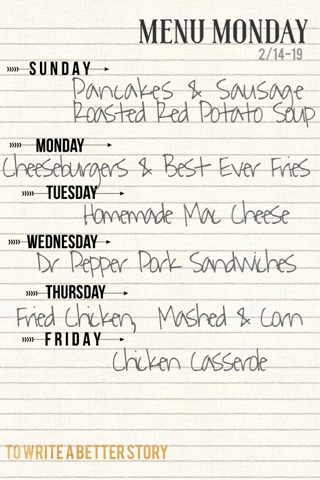 MENU MONDAY
2/14-19
SUNDAY
Pancakes & Sausage
Roasted Red Potato Soup
MONDAY
Cheeseburgers & Best Ever Fries
TUESDAY
Homemade Mac Cheese
WEDNESDAY
Dr Pepper Pork Sandwiches
THURSDAY
Fried Chicken, Mashed & Corn
FRIDAY
Chicken Casserole
TO WRITE A BETTER STORY